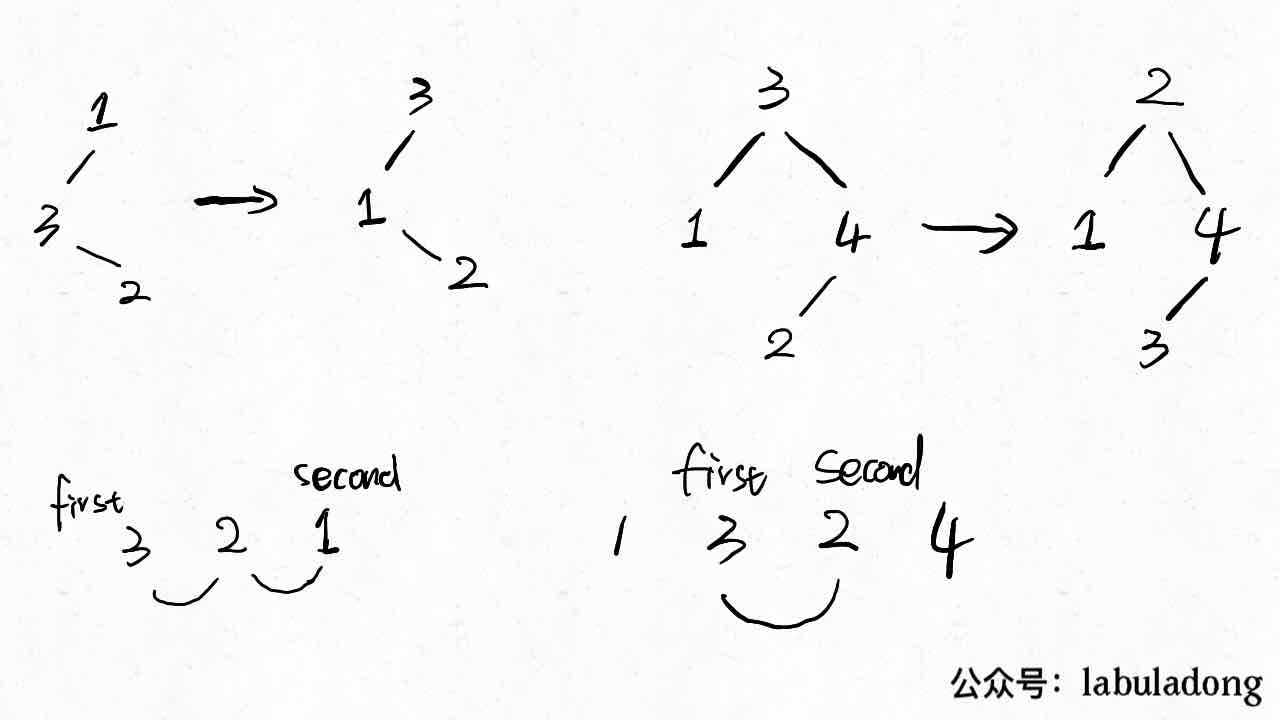 1
3
2
3
1
2
3
1 4
2
2
1 4
3
first second
3 2 1
first second
1 3 2 4
公众号：labuladong